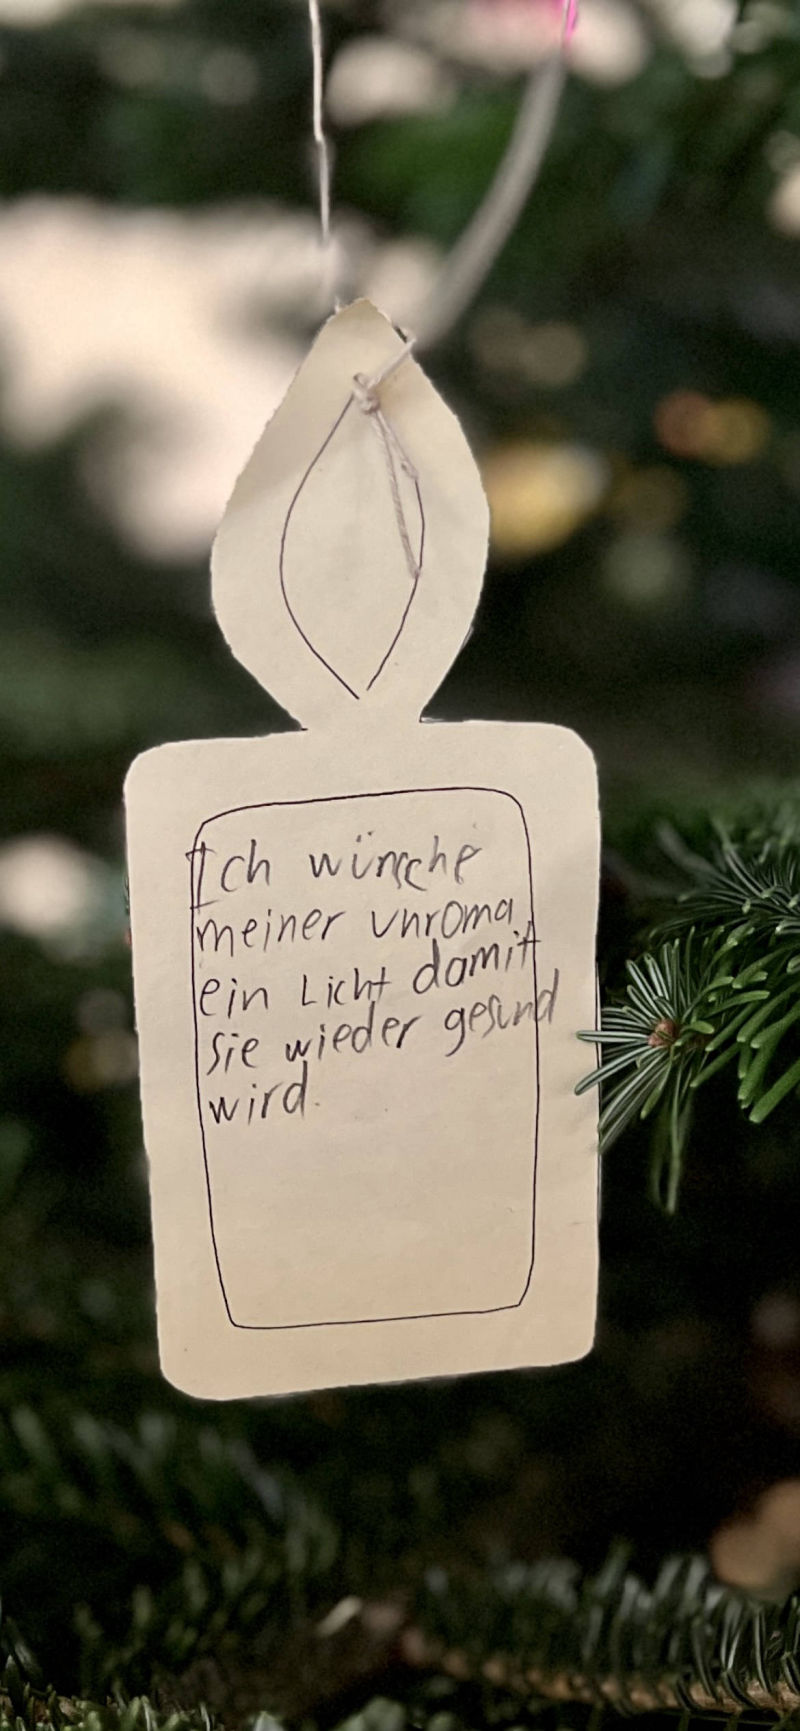 Ich wünsche
meiner unroma
ein Licht damit
sie wieder gesund
wird.